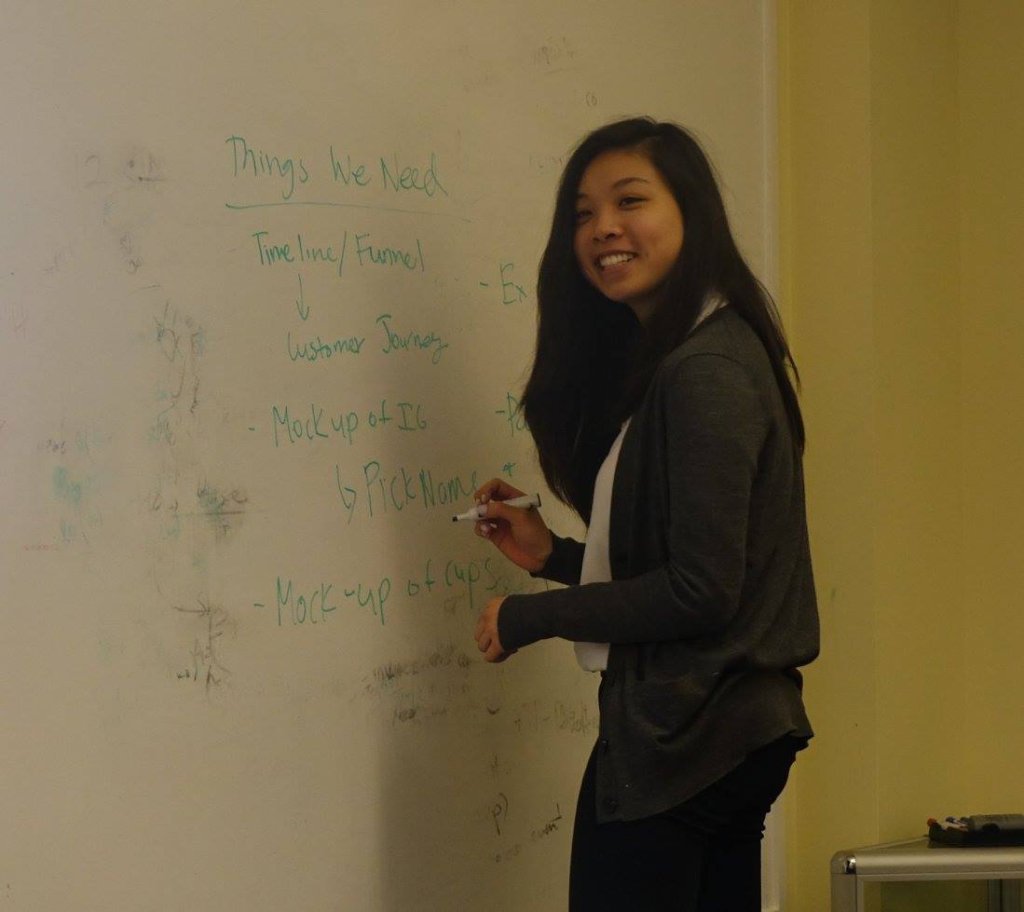 Things We Need
Timeline/Funnel
↓
Customer Journey
- Mock up of IG
↳ Pick Name *
- Mock-up of cups
- Ex
- Pa